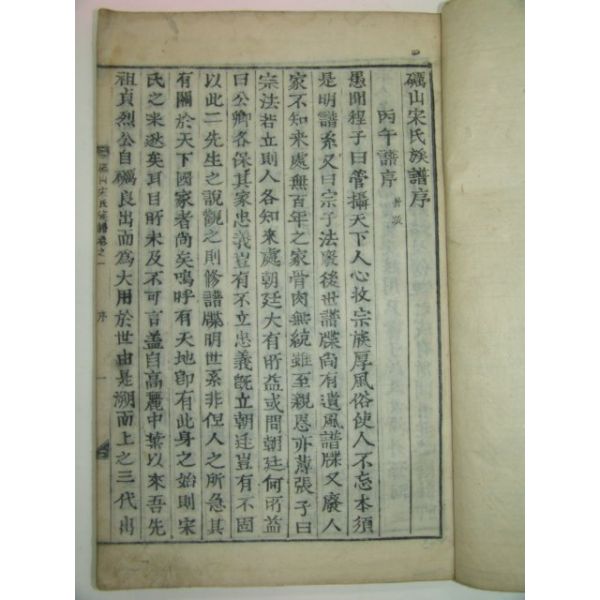 礪山宋氏族譜序
丙午譜序 舊版
愚聞程子曰管攝天下人心收宗族厚風俗使人不忘本須
是明譜系又曰宗子法廢後世譜牒尚有遺風譜牒又廢人
家不知来處無百年之家骨肉無統雖至親恩亦薄張子曰
宗法若立則人各知来處朝廷大有所益或問朝廷何所益
曰公卿各保其家忠義豈有不立忠義旣立朝廷豈有不固
以此二先生之說觀之則修譜牒明世系非但人之所急其
有關於天下國家者尚矣嗚呼有天地卽有此身之始則宋
氏之来逖矣耳目所未及不可言盖自高麗中葉以来吾先
祖貞烈公自礪良出而為大用於世由是溯而上之三代出
礪山宋氏族譜卷之一 序 一